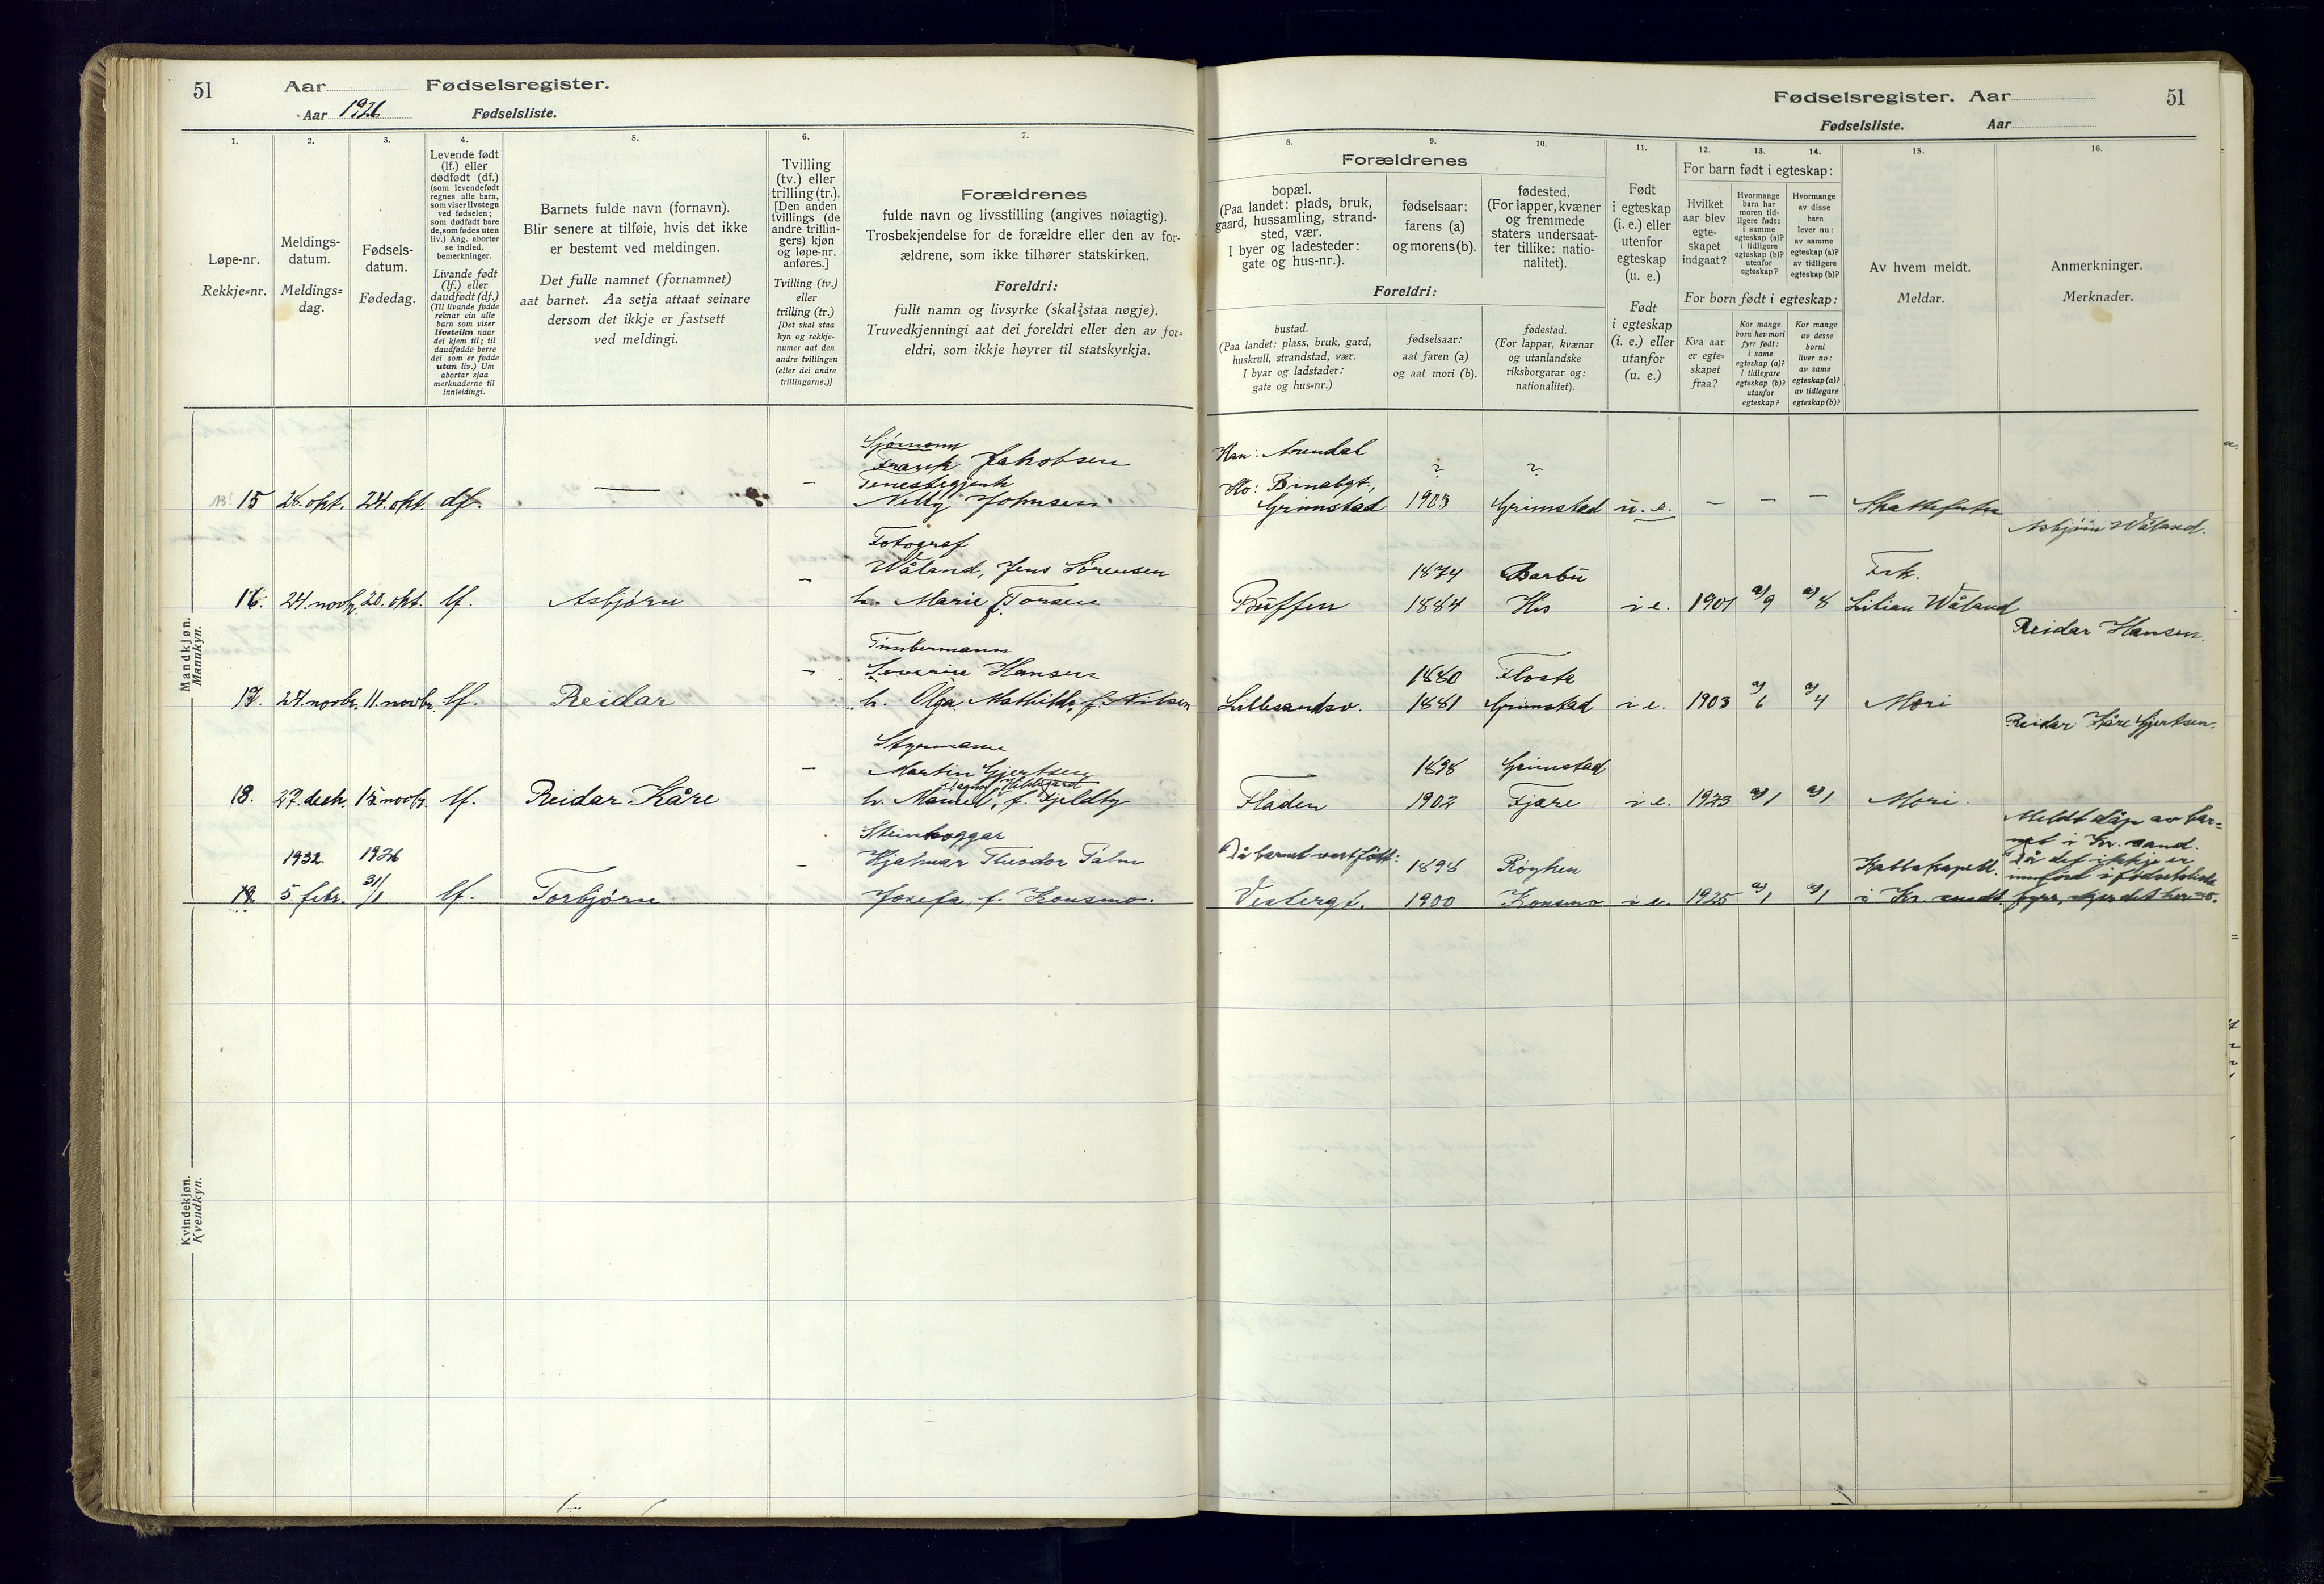 51
Aar
Fødselsregister.
Aar 1926
Fødselsliste.
1.
Løpe-nr.
Rekkje=nr.
2.
Meldings-
datum.
Meldings=
dag.
3.
Fødsels-
datum.
Fødedag.
4.
Levende født
(lf.) eller
dødfødt (df.)
(som levendefødt
regnes alle barn,
som viser livstegn
ved fødselen;
som dødfødt bare
de, som fødes uten
liv.) Ang. aborter
se indled.
bemerkninger.
Livande født
(lf.) eller
daudfødt (df.)
(Til livande fødde
reknar ein alle
barn som viser
livsteikn naar
dei kjem til; til
daudfødde berre
dei som er fødde
utan liv.) Um
abortar sjaa
merknaderne til
innleidingi.
5.
Barnets fulde navn (fornavn).
Blir senere at tilføie, hvis det ikke
er bestemt ved meldingen.
Det fulle namnet (fornamnet)
aat barnet. Aa setja attaat seinare
dersom det ikkje er fastsett
ved meldingi.
6.
Tvilling
(tv.) eller
trilling (tr.).
[Den anden
tvillings (de
andre trillin-
gers) kjøn
og løpe-nr.
anføres.]
Tvilling (tv.)
eller
trilling (tr.)
[Det skal staa
kyn og rekkje-
numer aat den
andre tvillingen
(eller dei andre
trillingarne.)]
7.
Forældrenes
fulde navn og livsstilling (angives nøiagtig).
Trosbekjendelse for de forældre eller den av for-
ældrene, som ikke tilhører statskirken.
Foreldri:
fullt namn og livsyrke (skal staa nøgje).
Truvedkjenningi aat dei foreldri eller den av for=
eldri, som ikkje høyrer til statskyrkja.
Fødselsregister. Aar
51
Fødselsliste.
Aar
8.
9.
10.
Forældrenes
bopæl.
(Paa landet: plads, bruk,
gaard, hussamling, strand-
sted, vær.
I byer og ladesteder:
gate og hus-nr.).
fødselsaar:
farens (a)
og morens (b).
fødested.
(For lapper, kvæner
og fremmede
staters undersaat-
ter tillike: natio-
nalitet).
Foreldri:
bustad.
(Paa landet: plass, bruk, gard,
huskrull, strandstad, vær.
I byar og ladstader:
gate og hus=nr.)
fødselsaar:
aat faren (a)
og aat mori (b).
fødestad.
(For lappar, kvænar
og utanlandske
riksborgarar og:
nationalitet).
11.
Født
i egteskap
(i. e.) eller
utenfor
egteskap
(u. e.)
Født
i egteskap
(i. e.) eller
utanfor
(u. e.)
12.
13.
14.
For barn født i egteskap:
Hvilket
aar blev
egte-
skapet
indgaat?
Hvormange
barn har
moren tid-
ligere født:
i samme
egteskap (a)?
i tidligere
egteskap (b)?
utenfor
egteskap?
Hvormange
av disse
barn
lever nu:
av samme
egteskap (a)?
av tidligere
egteskap (b)?
For born født i egteskap:
Kva aar
er egte=
skapet
fraa?
Kor mange
born hev mori
fyrr født:
i same
egteskap (a)?
i tidlegare
egteskap (b)?
utanfor
egteskap?
Kor mange
av desse
borni
liver no:
av same
egteskap (a)?
av tidlegare
egteskap (b)?
15.
Av hvem meldt.
Meldar.
16.
Anmerkninger.
Merknader.
Mandkjøn.
Mannkyn.
Sjømann
Frank Jakobsen
Tenestegjenk
15 28. okt. 24. okt. df. — – Nelly Johnsen
Han: Arendal ? ?
Ho: Binabgt.,
Grimstad 1903 Grimstad u. e. – – – Skattefuten
Asbjørn Wåland.
Fotograf
Wåland, Jens Sörensen
16. 24. novbr. 20. okt. lf. Asbjørn – h. Marie f. Torsen
1874 Barbu Frk.
Büffen 1884 His i e. 1901 a) 9 a) 8 Lilian Wåland
Reidar Hansen.
Timbermann
Severin Hansen
17. 27. novbr. 11. novbr. lf. Reidar – h. Olga Mathilde, f. Nilsen
1880 Flosta
Lillesandsv. 1881 Grimstad i e. 1903 a) 6 a) 4 Mori
Reidar Kåre Gjertsen.
Styrmann
Martin Gjertsen
Dagny Hildegard
18. 27. desbr. 15. novbr. lf. Reidar Kåre – h. f. Fjeldby
1898 Grimstad
Fladen 1902 Fjære i e. 1923 a) 1 a) 1 Mori.
Steinhoggar
1932 1926 – Hjalmar Theodor Palm
19. 5 febr. 31/1 lf. Torbjørn Josefa f. Konsmo.
Då barnet vart född: 1898 Røyken Kallskapell.
Vesterg t. 1900 Konsmo i e. 1925 a) 1 a) 1 i Kr. sandt.
Meldt dåp av bar=
net i Kr. sand.
Då det ikkje er
innførd i fødselsliste
fyrr, skjer det her no.
Kvindekjøn.
Kvendkyn.